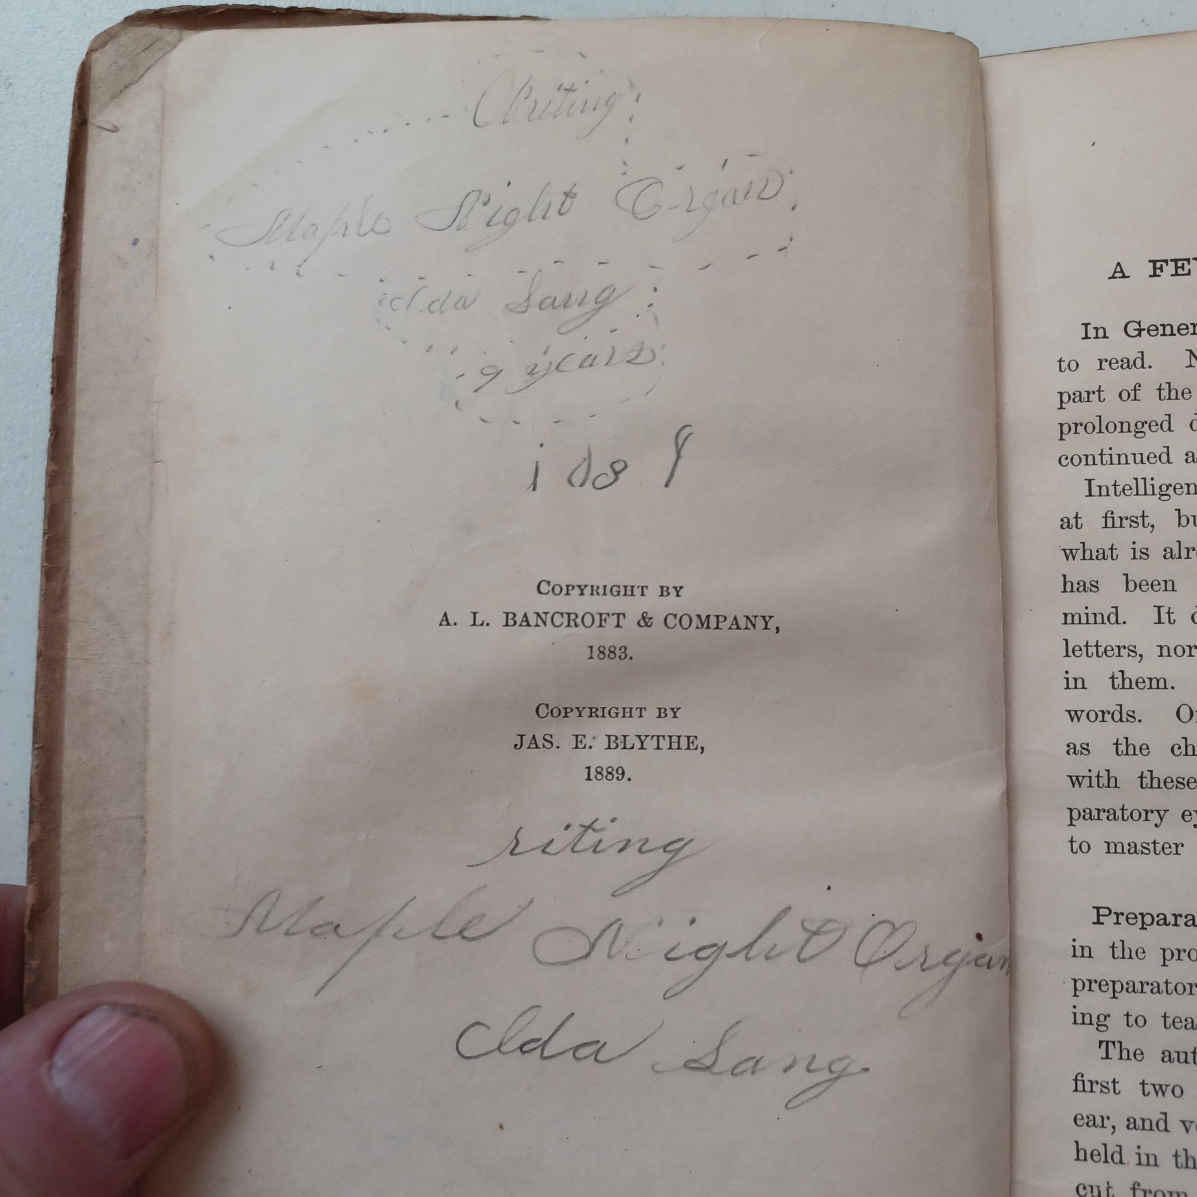 Writing
Maple Night Organ
Ida Sang
9 years
COPYRIGHT BY
A. L. BANCROFT & COMPANY,
1883.
COPYRIGHT BY
JAS. E. BLYTHE,
1889.
riting
Maple Night Organ
Ida Sang
A FE
In Gener
to read. N
part of the
prolonged
continued a
Intelligen
at first, bu
what is alr
has been
mind. It
letters, nor
in them.
words. O
as the ch
with these
paratory ey
to master
Prepara
in the pro
preparator
ing to tea
The aut
first two
ear, and v
held in th
cut from